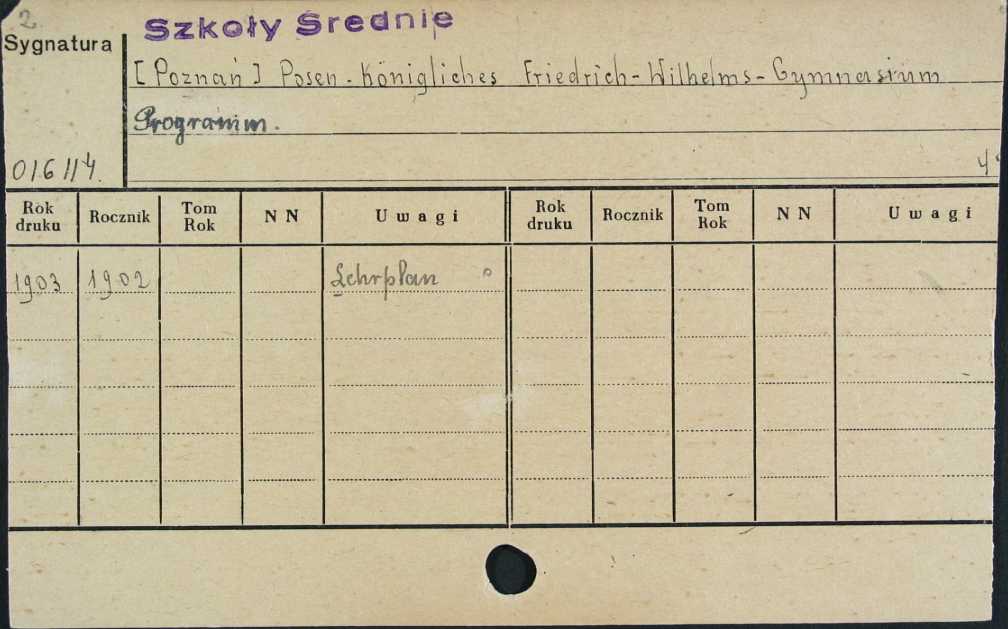 2.
Szkoły Średnie
Sygnatura
[Poznań] Posen - Königliches Friedrich-Wilhelms-Gymnasium
Programm.
016114.
4°
Rok druku Rocznik Tom Rok NN Uwagi Rok druku Rocznik Tom Rok NN Uwagi
1903 1902 Lehrplan